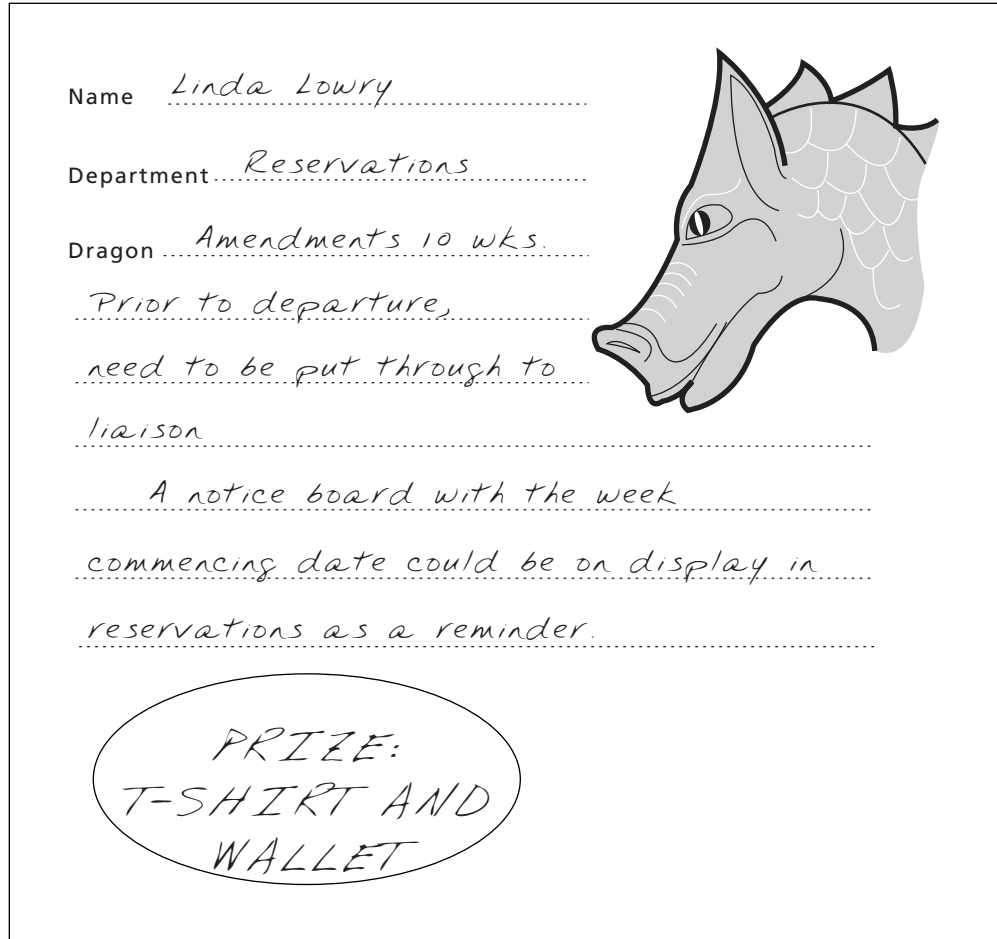 Name Linda Lowry
Department Reservations
Dragon Amendments 10 wks.
Prior to departure,
need to be put through to
liaison
A notice board with the week
commencing date could be on display in
reservations as a reminder.
PRIZE:
T-SHIRT AND
WALLET